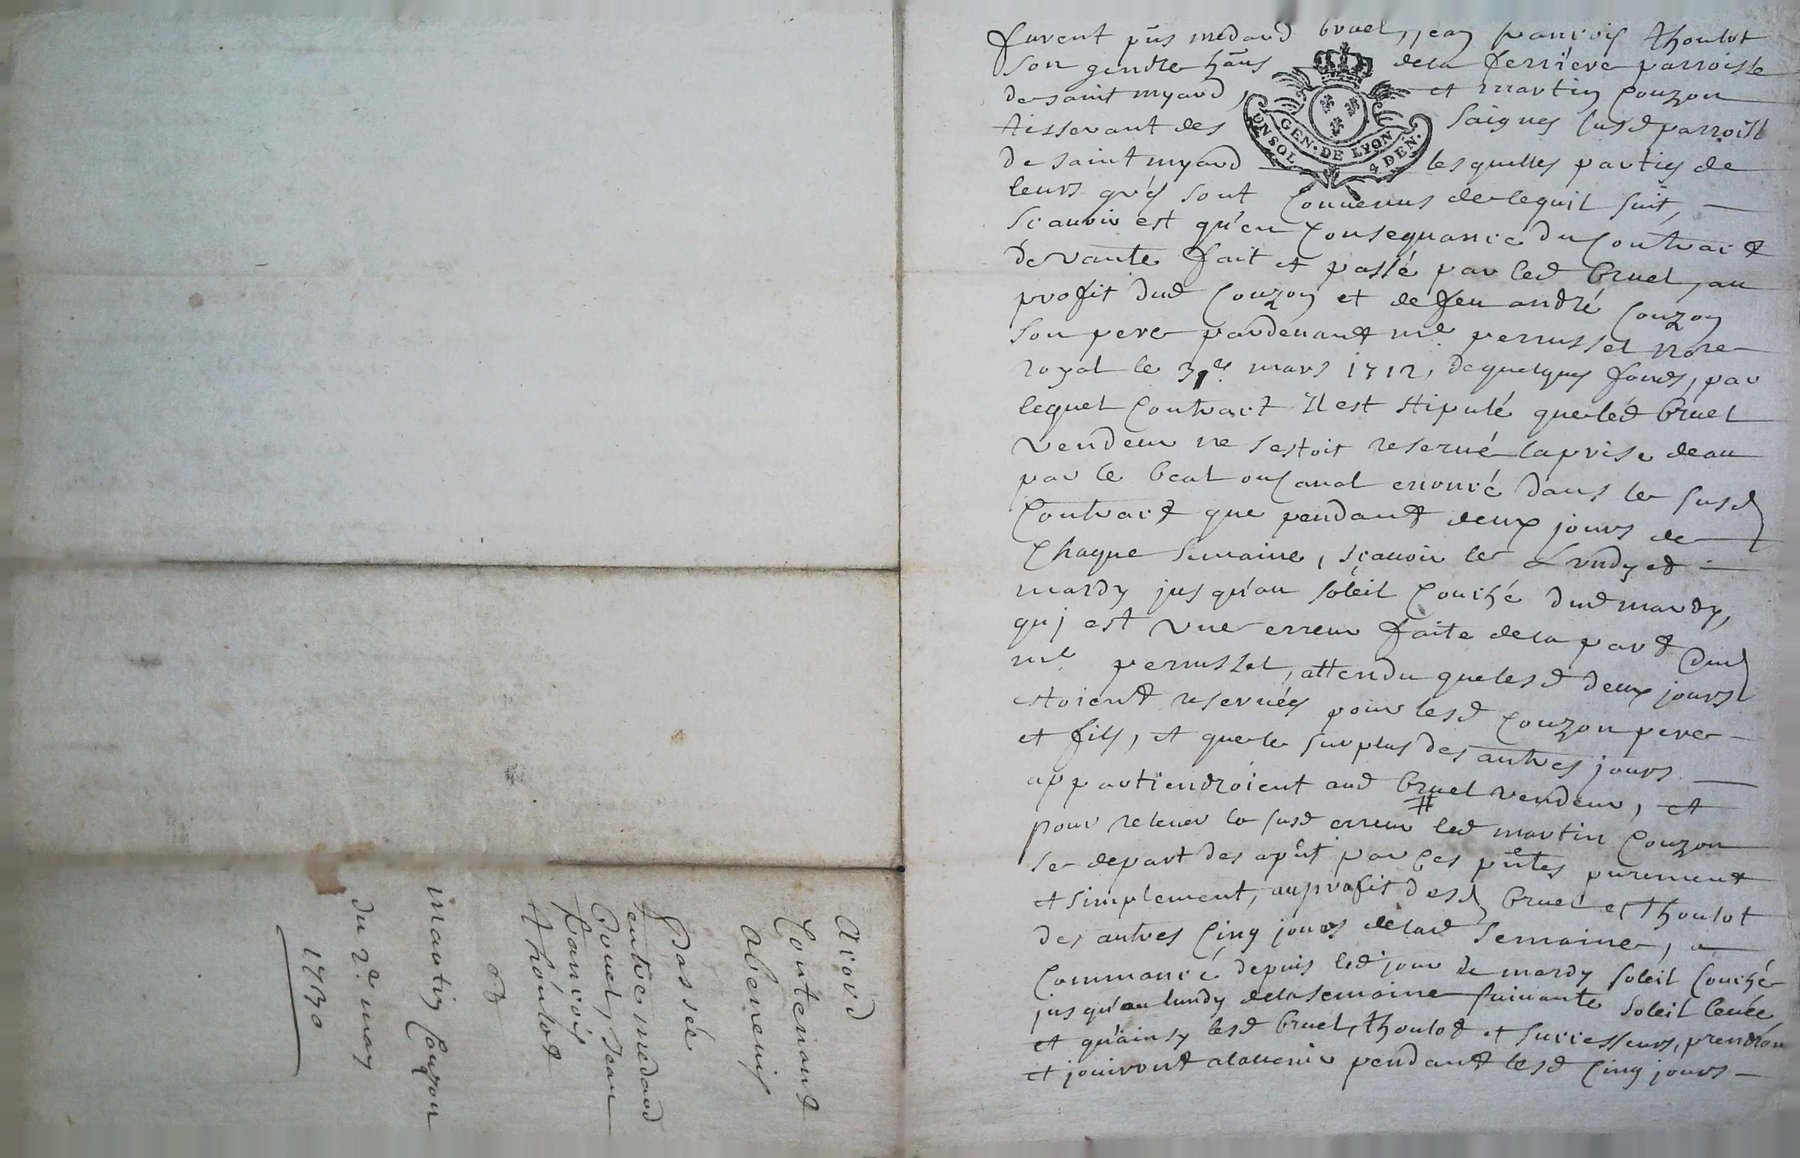 furent pn̄s medard bruel, jean francois thoulot
son gendre hān̄s dela ferriere parroisse
de saint myard, et martin Couzon
tisserant des saignes susd parroisse
de saint myard lesquelles parties de
leurs grés sont Convenus de lequil suit, —
scauoir est qu'en Consequance du Contraict
devante fait et passé par led bruel, au
profit dud Couzon et de feu andré Couzon
son pere pardeuant me perrussel nore
royal le mars 1712, de quelques fonds, par
lequel Contract Il est stipulé que led bruel
vendeur ne sestoit reserué la prise deau
par le beal ou Canal enoncé dans le susd
Contract que pendant deux jours de
Chaque semaine, scauoir le Lundy et —
mardy jusqu'au soleil Couché dud mardy,
quj est vne erreur faite dela part dud
me perrussel, attendu que lesd deux jours
estoient reserués pour lesd Couzon pere —
et fils, et que le surplus des autres jours —
appartiendroient aud bruel vendeur, et
pour releuer la susd erreur # led martin Couzon
se depart des apn̄t par Ces pn̄tes purement
et simplement, au profit desd bruel et thoulot
des autres Cinq jours delad semaine, a
Commancé depuis led jour de mardy soleil Couché
jusqu'au lundy dela semaine suiuante soleil leuée
et qu'ainsy lesd bruel, thoulot et successeurs, prendron
et jouiront alauenir pendant lesd Cinq jours —
GEN. DE LYON
UN SOL 4 DEN.
acord
Contenant
abenevis
passée
entre médard
bruel, Jean
francois
thoulot
et
martin Couzon
du 2e may
1730